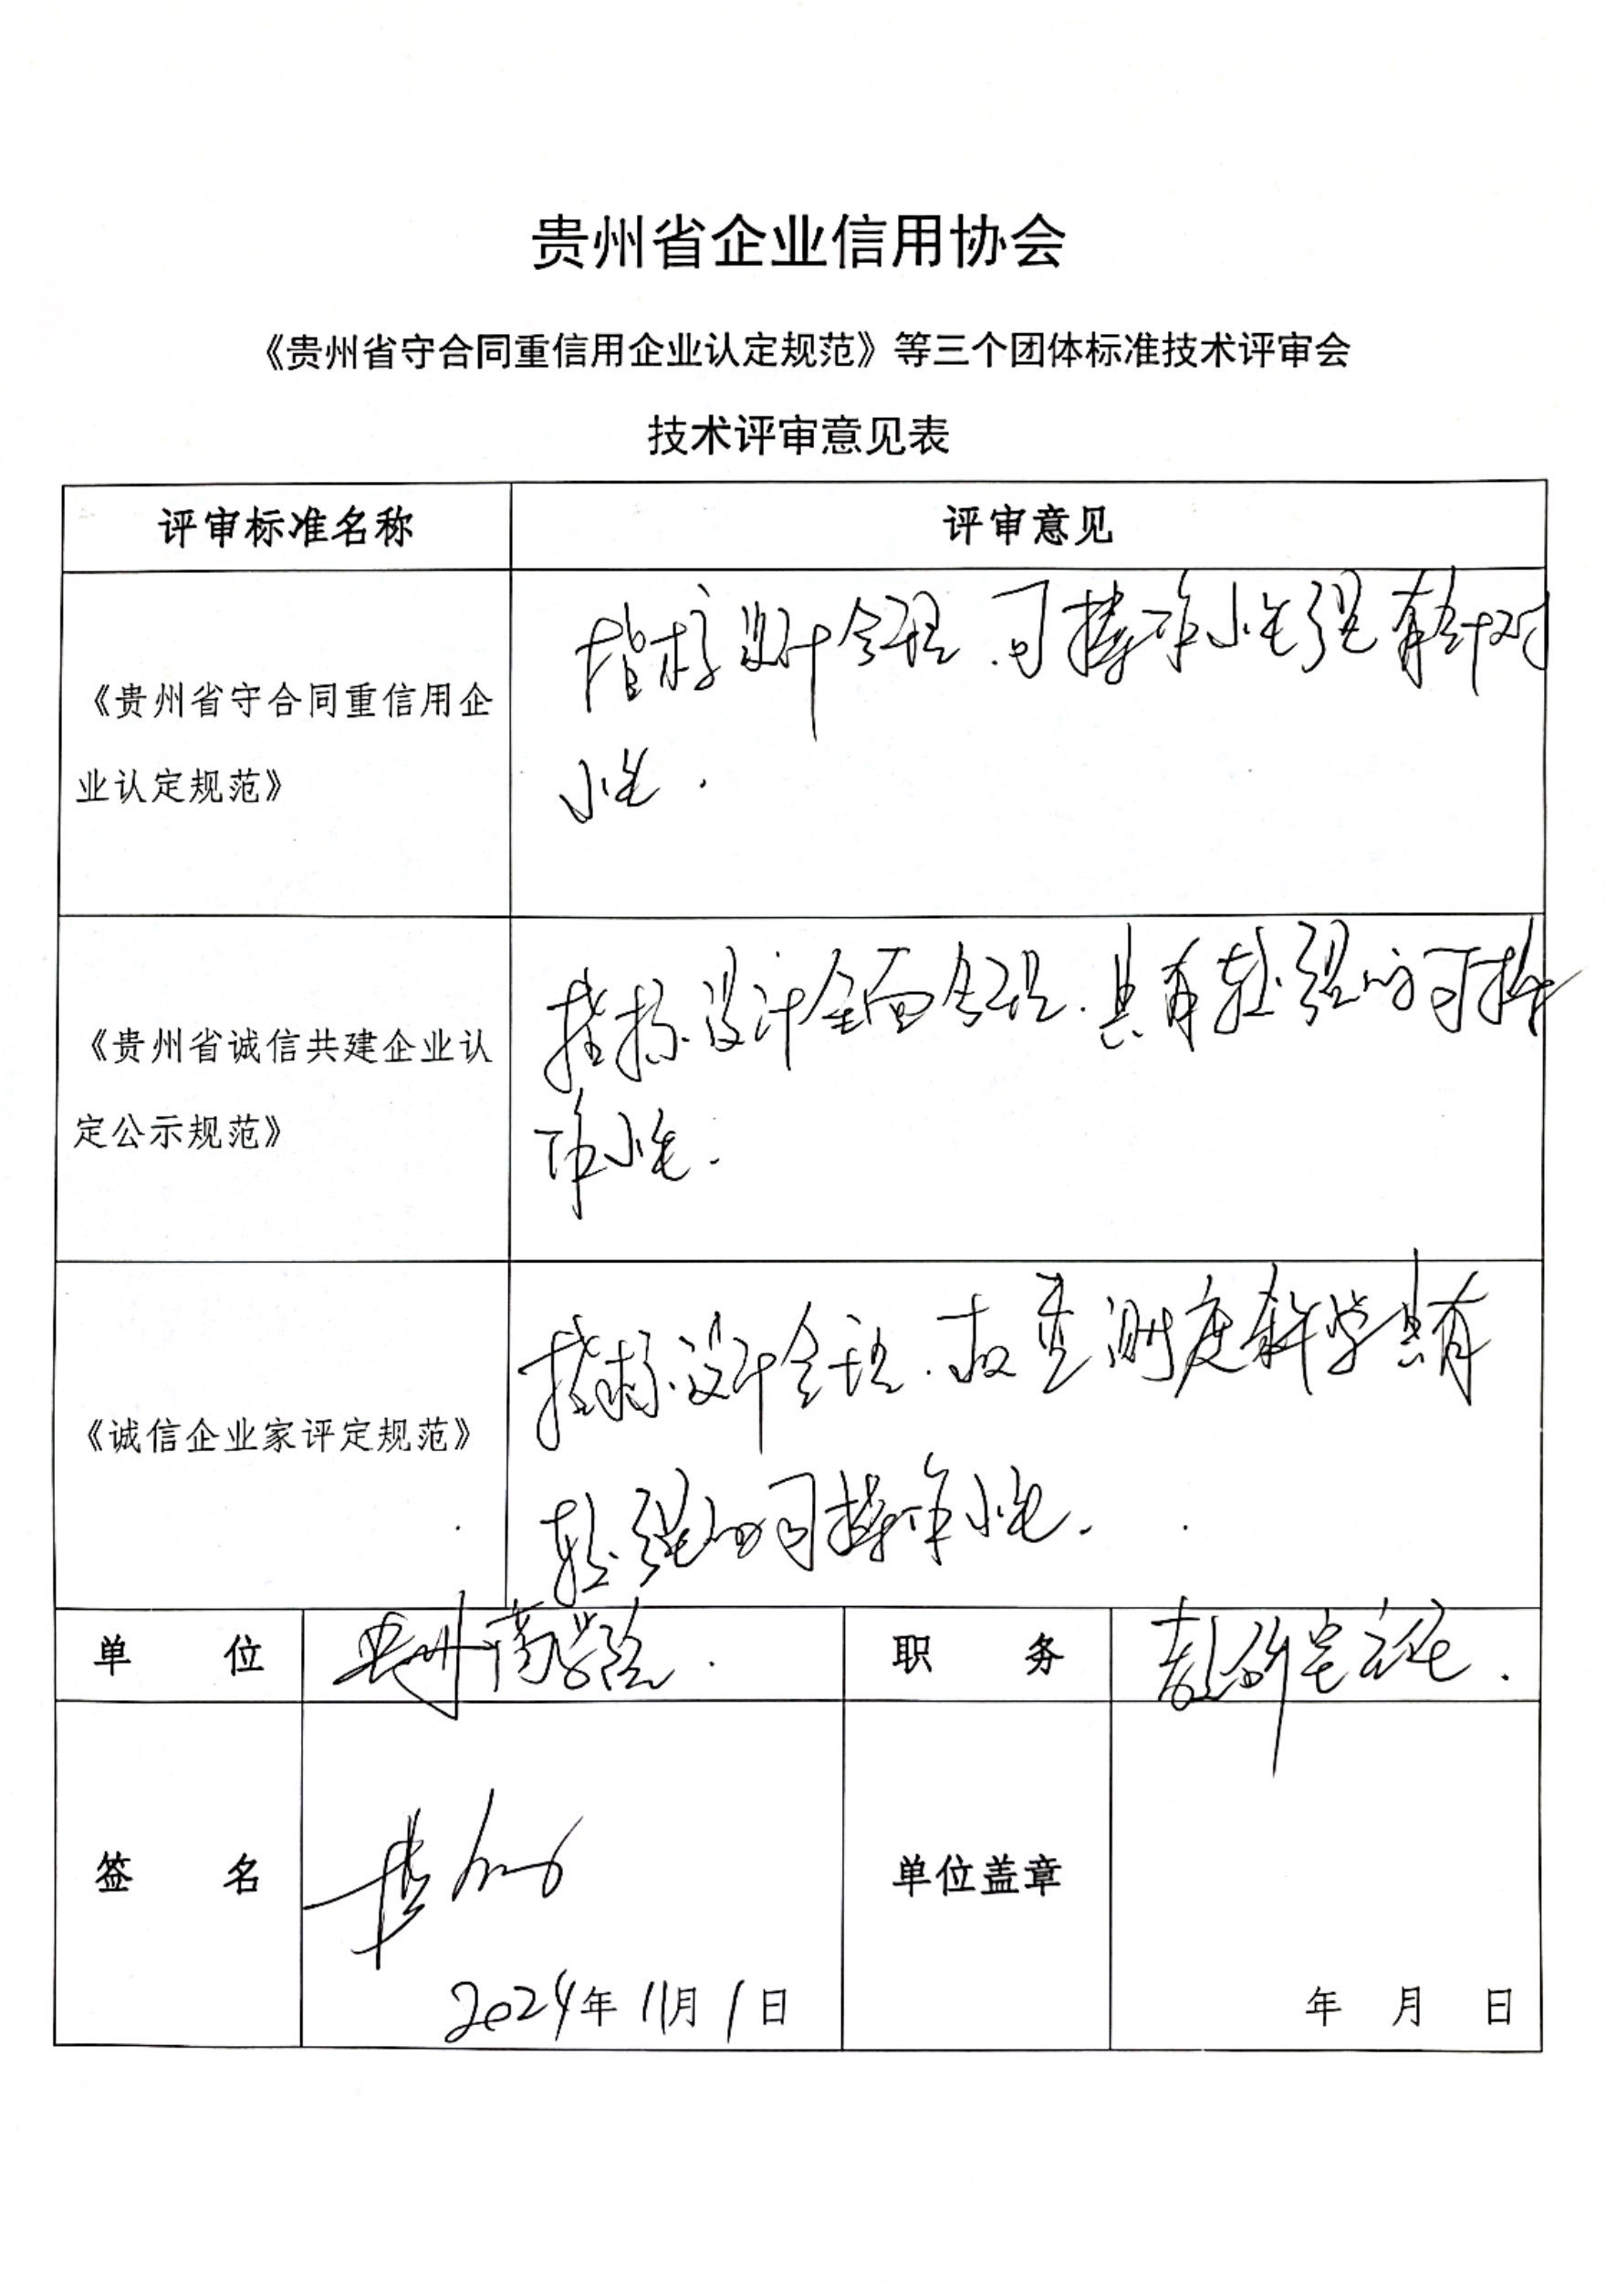 贵州省企业信用协会
《贵州省守合同重信用企业认定规范》等三个团体标准技术评审会
技术评审意见表
评审标准名称 评审意见
《贵州省守合同重信用企
业认定规范》
指标设计合理.可操作性强有针对
性.
《贵州省诚信共建企业认
定公示规范》
指标设计全面合理.具有较强的可操
作性.
《诚信企业家评定规范》
指标设计合理. 测度科学具有
较强的可操作性.
单 位 贵州商学院. 职 务 教研室主任.
签 名 单位盖章
2024年 11月 1日 年 月 日